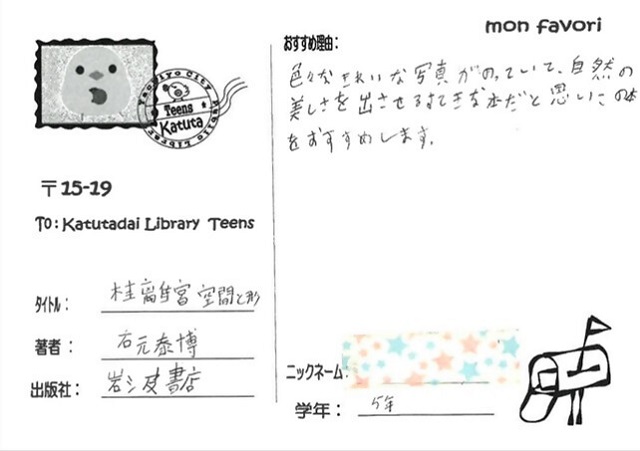 Teens
Katuta
〒15-19
To:Katutadai Library Teens
タイトル: 桂離宮 空間と形
著者: 石元泰博
出版社: 岩波書店
mon favori
おすすめ理由:
色々なきれいな写真がのっていて、自然の
美しさを出させるすてきな本だと思いこの本
をおすすめします。
ニックネーム:
学年: 5年